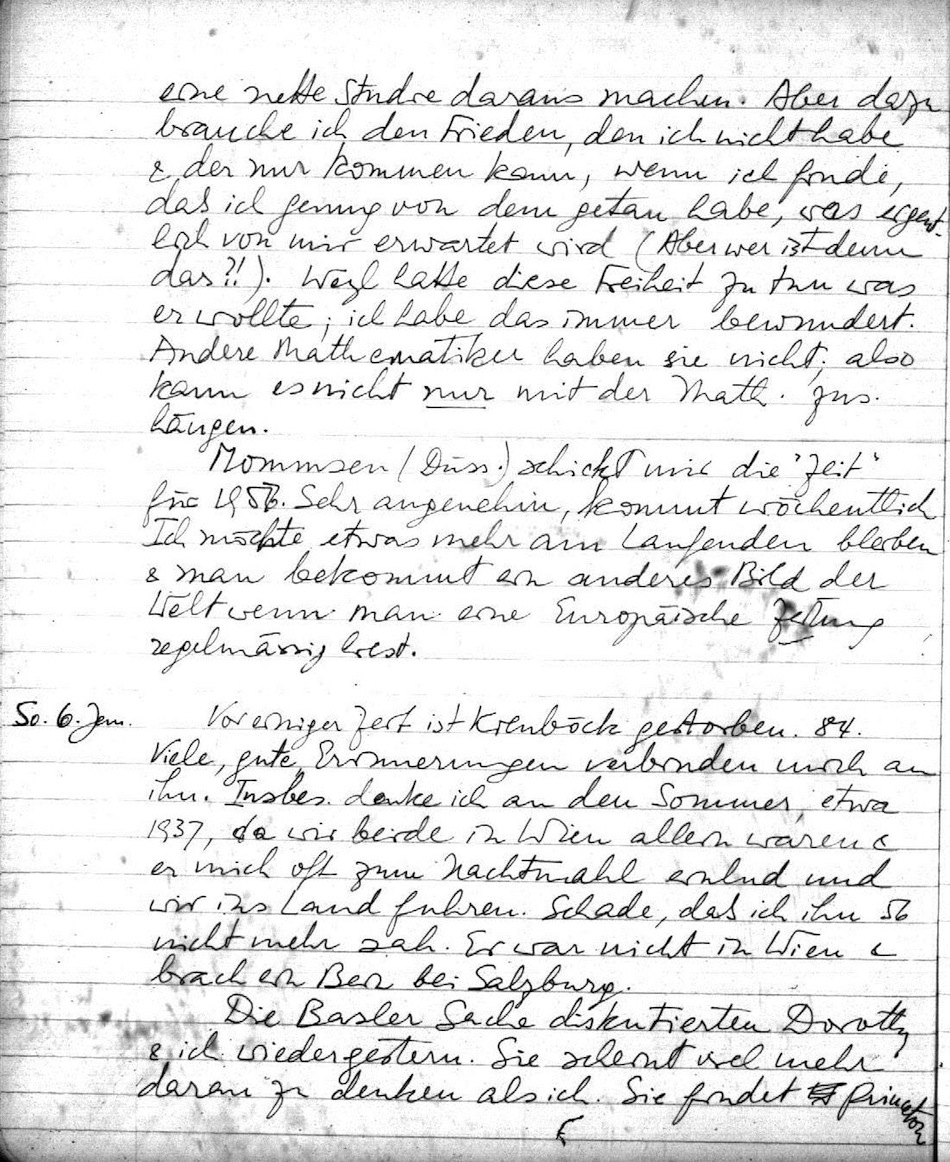 eine nette Studie daraus machen. Aber dazu
brauche ich den Frieden, den ich nicht habe
& der nur kommen kann, wenn ich finde,
das ich genug von dem getan habe, was eigent-
lich von mir erwartet wird (Aber wer ist denn
das?!). Weyl hatte diese Freiheit zu tun was
er wollte; ich habe das immer bewundert.
Andere Mathematiker haben sie nicht; also
kann es nicht nur mit der Math. zus.
hängen.
Mommsen (Düss.) schickt mir die "Zeit"
für 1956. Sehr angenehm, kommt wöchentlich
Ich möchte etwas mehr am Laufenden bleiben
& man bekommt ein anderes Bild der
Welt wenn man eine Europäische Zeitung
regelmässig liest.
So. 6. Jan. Vor einiger Zeit ist Kienböck gestorben. 84.
Viele, gute Erinnerungen verbinden mich an
ihn. Insbes. denke ich an den Sommer, etwa
1937, da wir beide in Wien allein waren &
er mich oft zum Nachtmahl einlud und
wir ins Land fuhren. Schade, das ich ihn 56
nicht mehr sah. Er war nicht in Wien &
brach ein Bein bei Salzburg.
Die Basler Sache diskutierten Dorothy
& ich wieder gestern. Sie scheint viel mehr
daran zu denken als ich. Sie findet Princeton